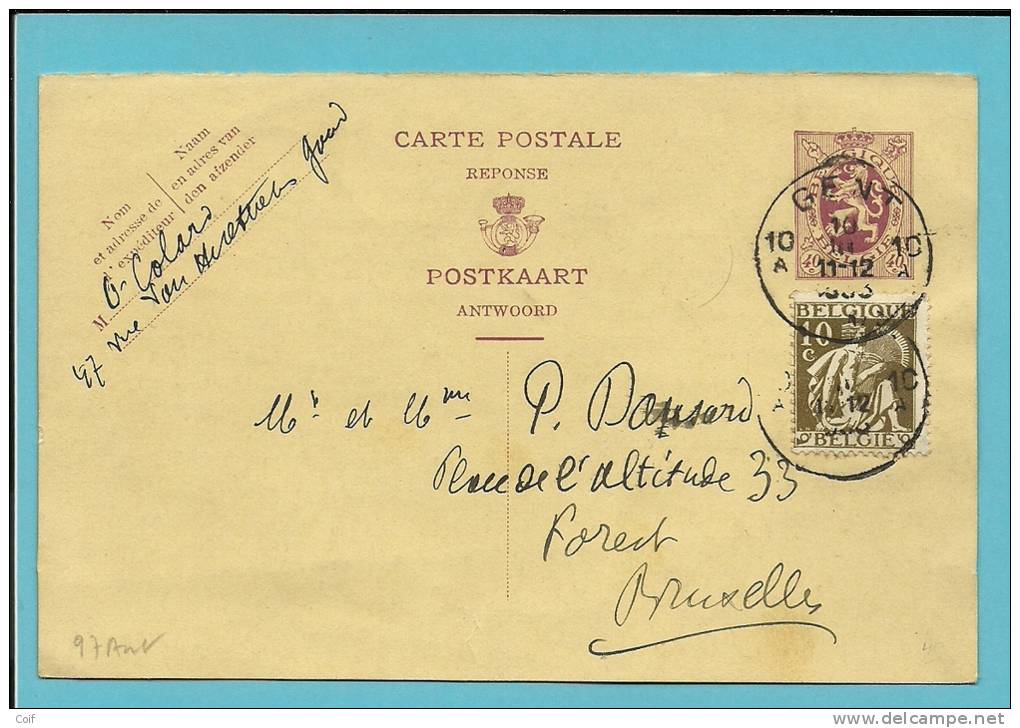 CARTE POSTALE
REPONSE
POSTKAART
ANTWOORD
Nom
et adresse de
l'expéditeur
Naam
en adres van
den afzender
M
97 rue Van
BELGIQUE
BELGIE
40 40
GENT
10 10
A A
10
11-12
BELGIQUE
10
C
BELGIE
10
A
12
Mr et Mme P.
Place de l'Altitude 33
Forest
Bruxelles
97 Ant
Coif
www.delcampe.net